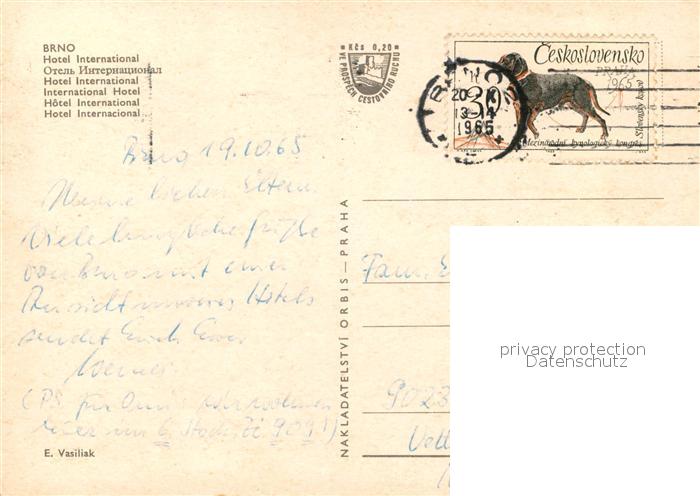 BRNO
Hotel International
Отель Интернационал
Hotel International
International Hotel
Hôtel International
Hotel Internacional
Kčs 0,20
VE PROSPĚCH CESTOVNÍHO RUCHU
Československo
PRAHA
1965
30
Slovenský kopov
Mezinárodní kynologický kongres
BRNO
20
13-14
1965
Brno 19.10.65
Meine lieben Eltern
Viele herzliche Grüße
von Brno mit einer
Ansicht unseres Hotels
sendet Euch Euer
Werner.
(PS für Omi: wir wohnen
hier im 6. Stock, Zi 909!)
E. Vasiliak
NAKLADATELSTVÍ ORBIS — PRAHA
Fam.
9023
privacy protection
Datenschutz